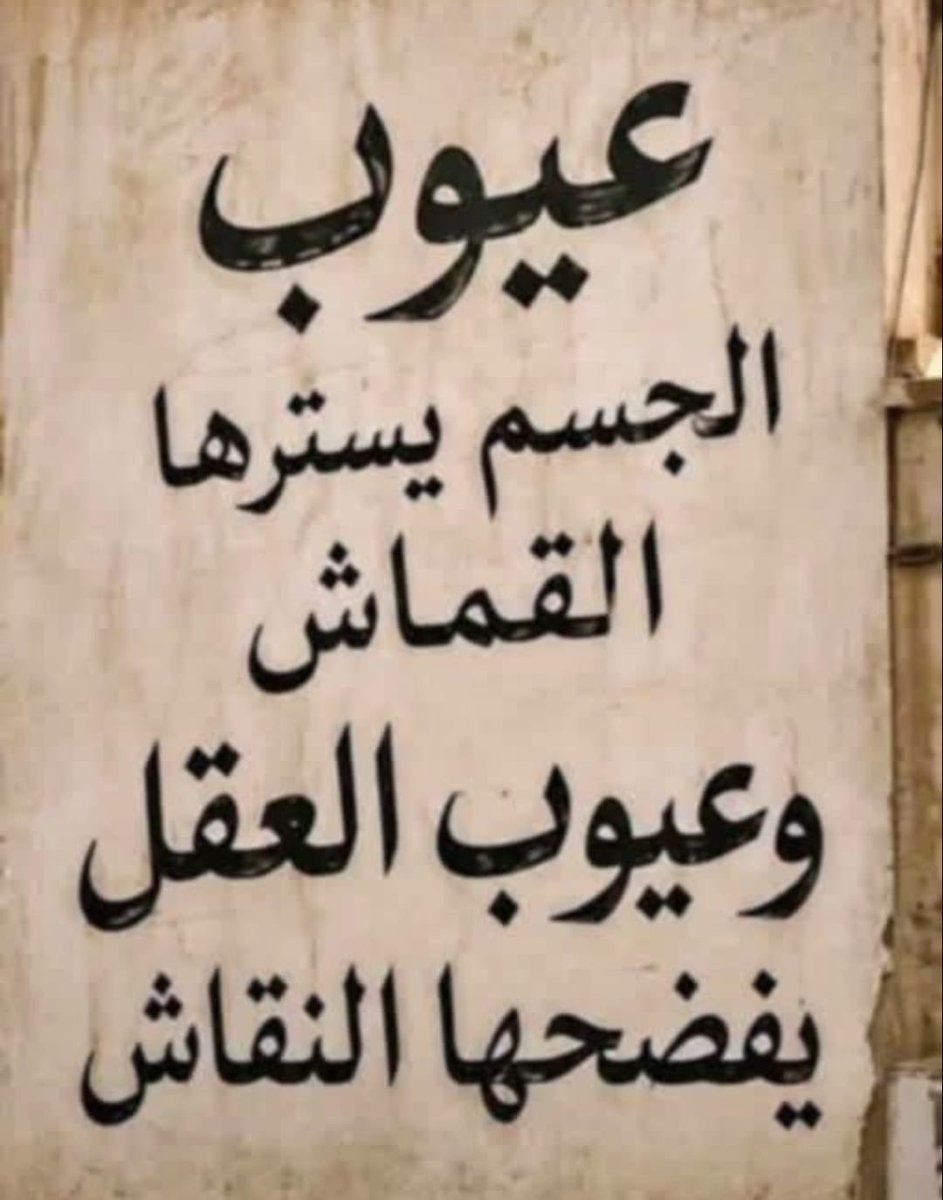 عيوب
الجسم يسترها
القماش
وعيوب العقل
يفضحها النقاش